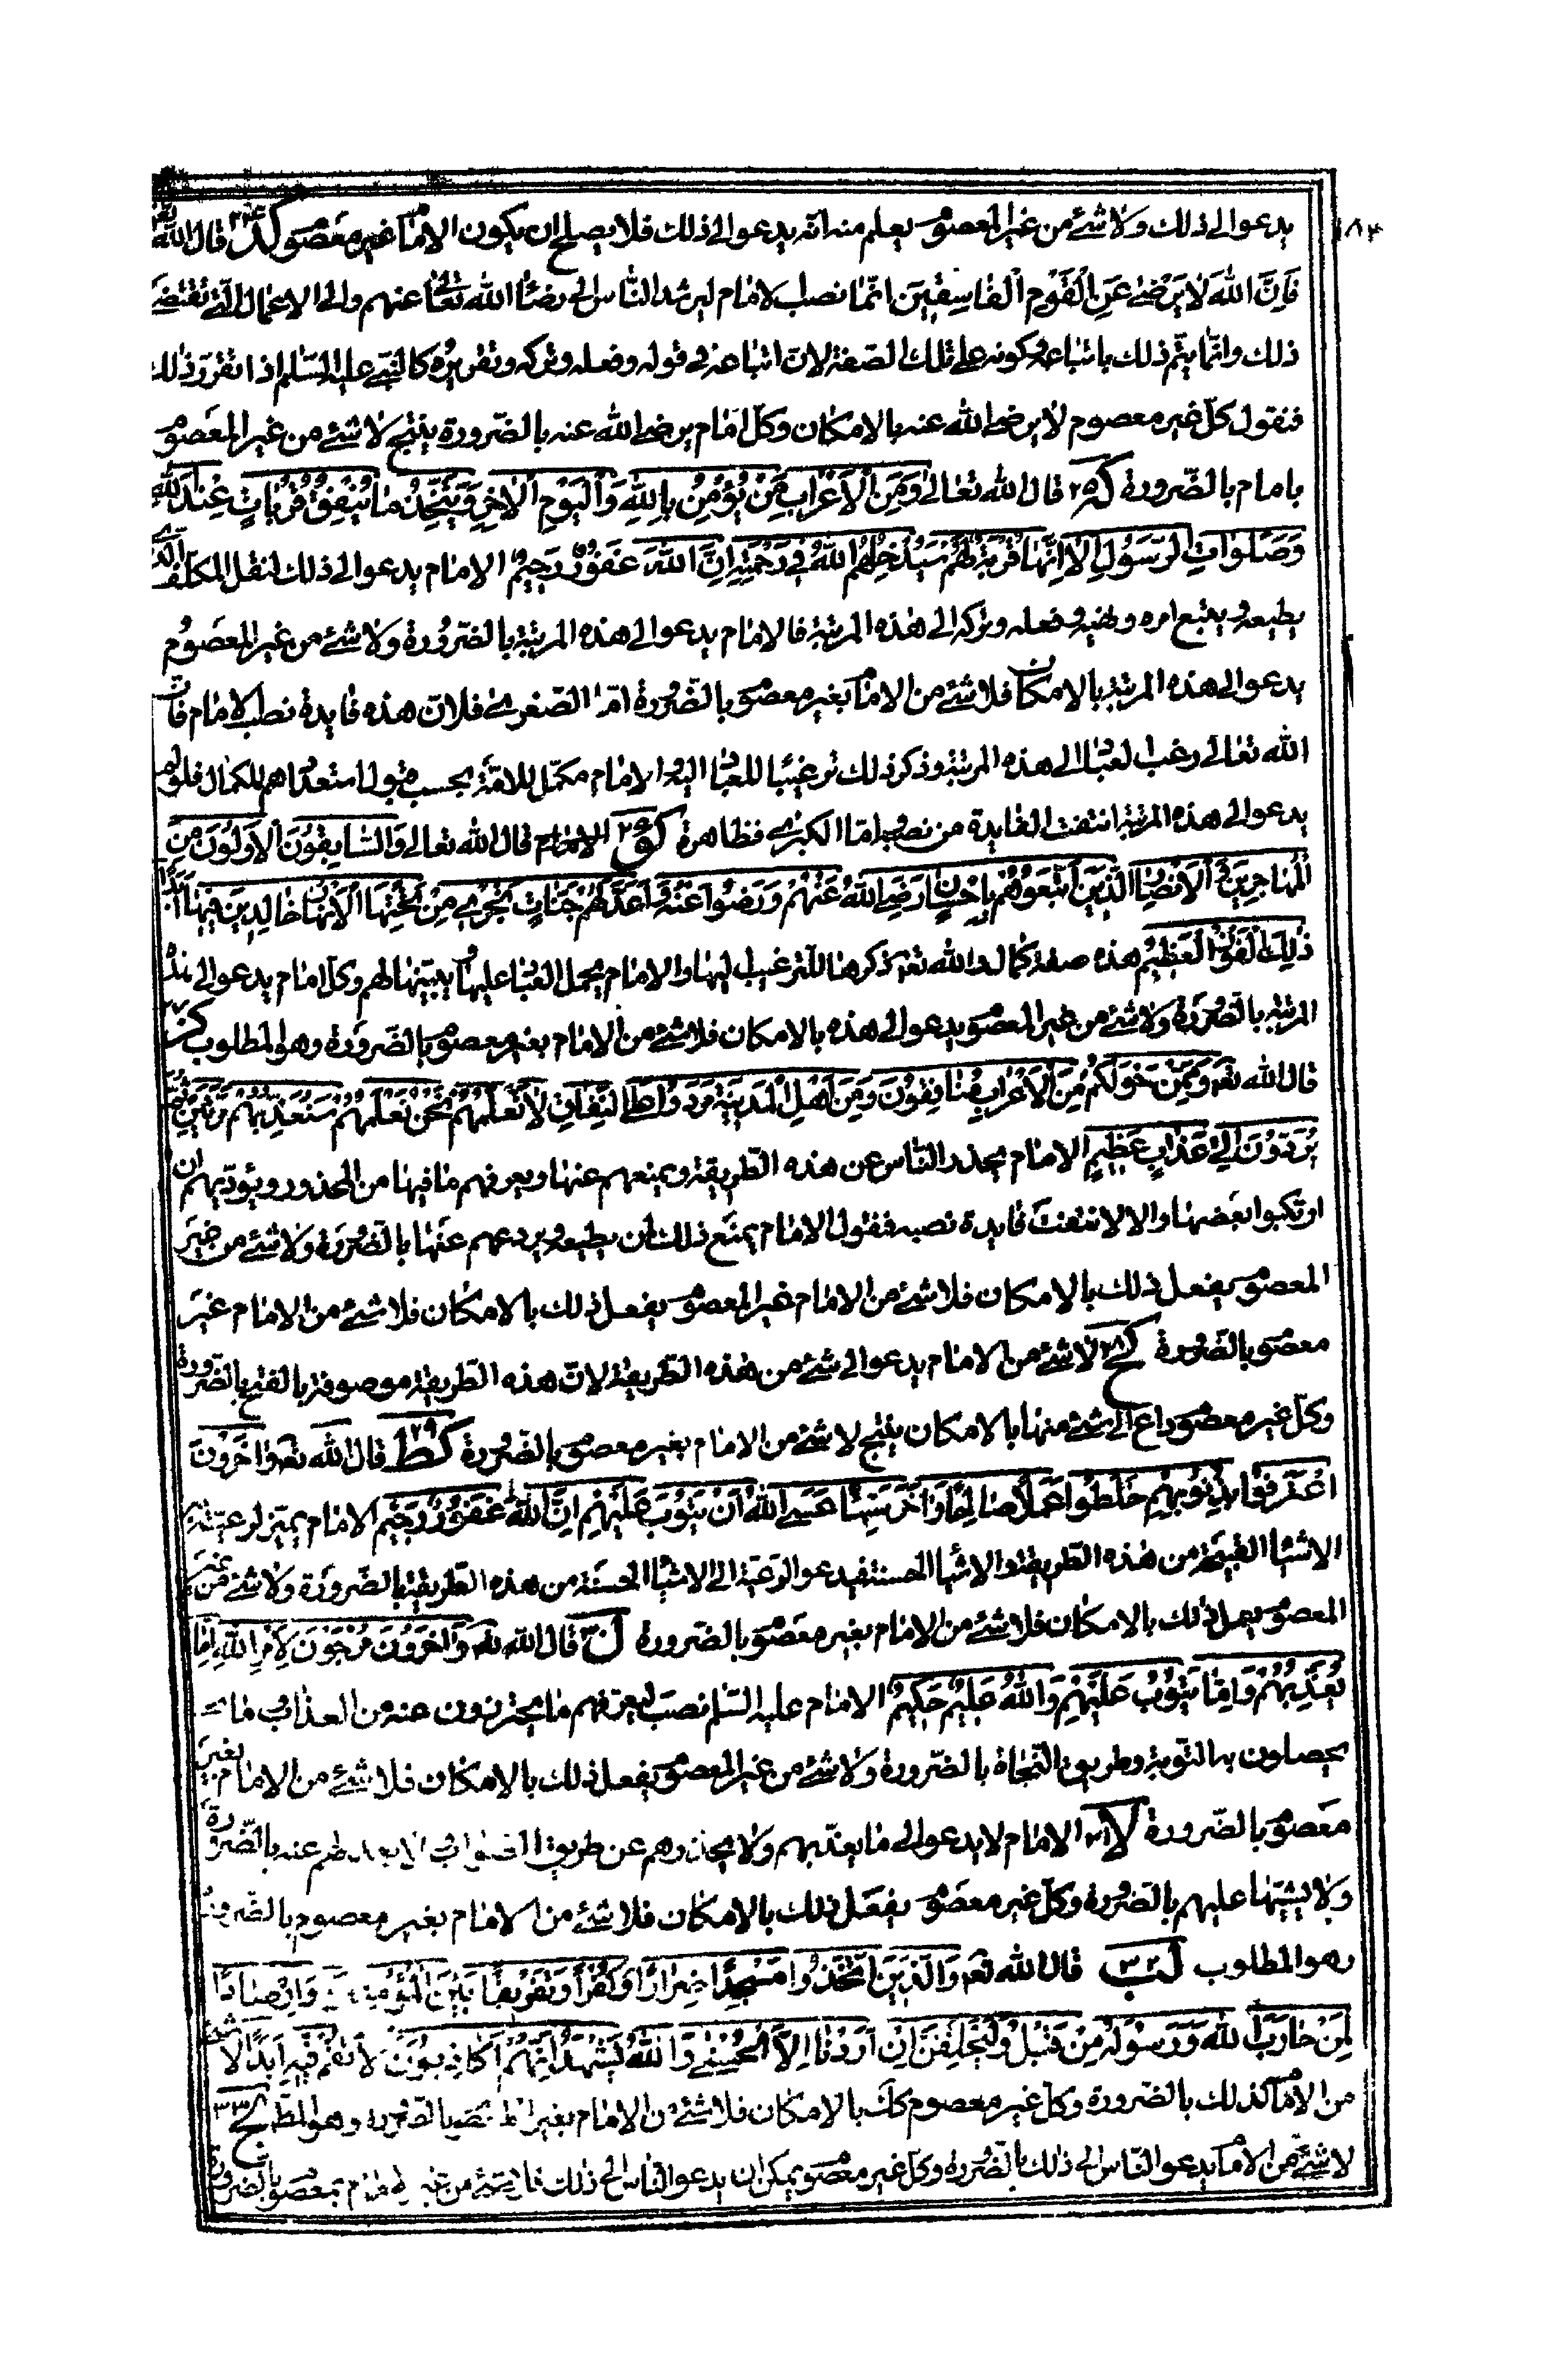 ١٨٤
يدعو الى ذلك ولا شئ من غير المعصوم يعلم منه انّه يدعو الى ذلك فلا يصلح ان يكون الامام غير معصوم كد ٢٤ قال الله تع
فَاِنَّ اللهَ لا يَرْضىٰ عَنِ الْقَوْمِ الْفاسِقِينَ انّما نصب الامام ليرشد النّاس الى رضاء الله تعالى عنهم والى الاعمال الّتي تقتضي
ذلك وانّما يتمّ ذلك باتباعه وكونه على تلك الصّفة لانّ اتباعه في قوله وفعله وتركه وتقريره كالنّبي عليه السّلم اذا تقرر ذلك
فنقول كلّ غير معصوم لا يرضى الله عنه بالامكان وكلّ امام يرضى الله عنه بالضّرورة ينتج لا شئ من غير المعصوم
بامام بالضّرورة كه ٢٥ قال الله تعالى وَمِنَ الْاَعْرابِ مَنْ يُؤْمِنُ بِاللهِ وَالْيَوْمِ الْاٰخِرِ وَيَتَّخِذُ ما يُنْفِقُ قُرُباتٍ عِنْدَ اللهِ
وَصَلَواتِ الرَّسُولِ اَلا اِنَّها قُرْبَةٌ لَهُمْ سَيُدْخِلُهُمُ اللهُ فِي رَحْمَتِهِ اِنَّ اللهَ غَفُورٌ رَحِيمٌ الامام يدعو الى ذلك لنقل المكلّف الّذي
يطيعه ويتبع امره ونهيه وفعله وتركه الى هذه المرتبة فالامام يدعو الى هذه المرتبة بالضّرورة ولا شئ من غير المعصوم
يدعو الى هذه المرتبة بالامكان فلا شئ من الامام بغير معصوم بالضّرورة امّا الصّغرى فلانّ هذه فايدة نصب الامام فانّ
الله تعالى رغب العباد الى هذه المرتبة وذكر ذلك ترغيبًا للعباد اليه والامام مكمّل للامّة بحسب قبول استعدادهم للكمال فلو لم
يدعو الى هذه المرتبة انتفت الفايدة من نصبه امّا الكبرى فظاهرة كو ٢٦ قال الله تعالى وَالسّابِقُونَ الْاَوَّلُونَ مِنَ
الْمُهاجِرِينَ وَالْاَنْصارِ وَالَّذِينَ اتَّبَعُوهُمْ بِاِحْسانٍ رَضِيَ اللهُ عَنْهُمْ وَرَضُوا عَنْهُ وَاَعَدَّ لَهُمْ جَنّاتٍ تَجْرِي مِنْ تَحْتِهَا الْاَنْهارُ خالِدِينَ فِيها اَبَدًا
ذٰلِكَ الْفَوْزُ الْعَظِيمُ هذه صفة كمال الله تع ذكرها للترغيب اليها والامام يحمل العباد عليها يبيّنها لهم وكل امام يدعو الى هذه
المرتبة بالضّرورة ولا شئ من غير المعصوم يدعو الى هذه بالامكان فلا شئ من الامام بغير معصوم بالضّرورة وهو المطلوب كز ٢٧
قال الله تع وَمِمَّنْ حَوْلَكُمْ مِنَ الْاَعْرابِ مُنافِقُونَ وَمِنْ اَهْلِ الْمَدِينَةِ مَرَدُوا عَلَى النِّفاقِ لا تَعْلَمُهُمْ نَحْنُ نَعْلَمُهُمْ سَنُعَذِّبُهُمْ مَرَّتَيْنِ ثُمَّ
يُرَدُّونَ اِلىٰ عَذابٍ عَظِيمٍ الامام يحذر النّاس عن هذه الطّريقة ويمنعهم عنها ويعرفهم ما فيها من المحذور ويؤدّبهم ان
ارتكبوا بعضها والا لانتفت فايدة نصبه فنقول الامام يمنع ذلك لمن يطيعه ويردعهم عنها بالضّرورة ولا شئ من غير
المعصوم يفعل ذلك بالامكان فلا شئ من الامام غير المعصوم يفعل ذلك بالامكان فلا شئ من الامام غير
معصوم بالضّرورة كح ٢٨ لا شئ من الامام يدعو الى شئ من هذه الطّريقة لانّ هذه الطّريقة موصوفة بالقبح بالضّرورة
وكلّ غير معصوم داع الى شئ منها بالامكان ينتج لا شئ من الامام بغير معصوم بالضّرورة كط ٢٩ قال الله تع وَاٰخَرُونَ
اعْتَرَفُوا بِذُنُوبِهِمْ خَلَطُوا عَمَلًا صالِحًا وَاٰخَرَ سَيِّئًا عَسَى اللهُ اَنْ يَتُوبَ عَلَيْهِمْ اِنَّ اللهَ غَفُورٌ رَحِيمٌ الامام يميز لرعيته
الاشياء القبيحة من هذه الطّريقة والاشياء الحسنة فيدعو الرّعية الى الاشياء الحسنة من هذه الطّريقة بالضّرورة ولا شئ من غير
المعصوم يعمل ذلك بالامكان فلا شئ من الامام بغير معصوم بالضّرورة ل ٣٠ قال الله تع وَاٰخَرُونَ مُرْجَوْنَ لِاَمْرِ اللهِ اِمّا
يُعَذِّبُهُمْ وَاِمّا يَتُوبُ عَلَيْهِمْ وَاللهُ عَلِيمٌ حَكِيمٌ الامام عليه السّلم نصب ليعرّفهم ما يحترزون عنه من العذاب وما
يحصلون به التّوبة وطريق النّجاة بالضّرورة ولا شئ من غير المعصوم يفعل ذلك بالامكان فلا شئ من الامام بغير
معصوم بالضّرورة لا ٣١ الامام لا يدعو الى ما يعذّبهم ولا يحذرهم عن طريق الصّواب ولا يبعدهم عنه بالضّرورة
ولا يشبّهها عليهم بالضّرورة وكلّ غير معصوم يفعل ذلك بالامكان فلا شئ من الامام بغير معصوم بالضّرورة
وهو المطلوب لب ٣٢ قال الله تع وَالَّذِينَ اتَّخَذُوا مَسْجِدًا ضِرارًا وَكُفْرًا وَتَفْرِيقًا بَيْنَ الْمُؤْمِنِينَ وَاِرْصادًا
لِمَنْ حارَبَ اللهَ وَرَسُولَهُ مِنْ قَبْلُ وَلَيَحْلِفُنَّ اِنْ اَرَدْنا اِلَّا الْحُسْنىٰ وَاللهُ يَشْهَدُ اِنَّهُمْ لَكاذِبُونَ لا تَقُمْ فِيهِ اَبَدًا لا شئ
من الامام كذلك بالضّرورة وكلّ غير معصوم كك بالامكان فلا شئ من الامام بغير بالضّرورة وهو المط لج ٣٣
لا شئ من الامام يدعو النّاس الى ذلك بالضّرورة وكلّ غير معصوم يمكن ان يدعو النّاس الى ذلك فلا شئ من بمعصوم بالضّرورة